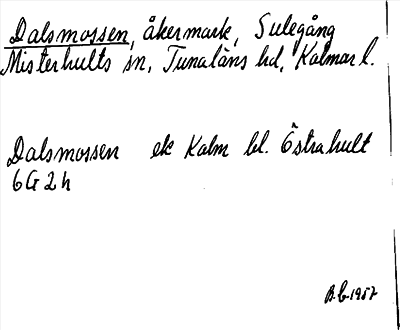 Dalsmossen, åkermark, Sulegång
Misterhults sn, Tunaläns hd, Kalmar l.
Dalsmossen ek Kalm bl. Östrahult
6G2h
B.G. 1957